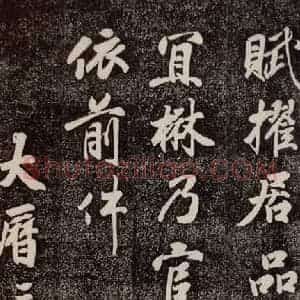 賦擢居品
宜楙乃官
依前件
大曆三
Shufaziliao.COM